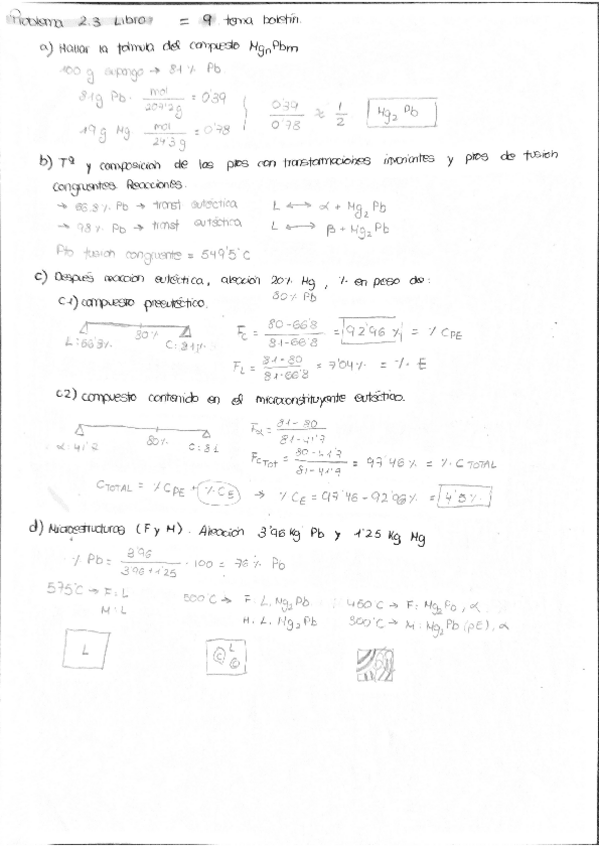 Problema 2.3 Libro = 9 tema boletín.
a) Hallar la fórmula del compuesto MgnPbm
100 g supongo → 81% Pb
81g Pb · mol/207'2g = 0'39
19 g Mg mol/24'3g = 0'78
0'39/0'78 ≈ 1/2 Mg2 Pb
b) Tª y composición de los ptos con transformaciones invariantes y ptos de fusión
congruentes. Reacciones.
→ 66.8% Pb → transf eutéctica L ↔ α + Mg2 Pb
→ 98% Pb → transf eutéctica L ↔ β + Mg2Pb
Pto fusión congruente = 549'5°C
c) Después reacción eutéctica, aleación 20% Mg, % en peso de:
80% Pb
c.1) compuesto proeutéctico.
L: 66'8% 80% C: 81%
Fc = 80-66'8/81-66'8 = 92'96% = % CPE
FL = 81-80/81-66'8 = 7'04% = % E
c.2) compuesto contenido en el microconstituyente eutéctico.
α: 41'7 80% C: 81
Fα = 81-80/81-41'7
FcTot = 80-41'7/81-41'7 = 97'46% = % C TOTAL
CTOTAL = % CPE + % CE → % CE = 97'46-92'96% = 4'5%
d) Microestructuras (F y M). Aleación 3'96 Kg Pb y 1'25 Kg Mg
% Pb = 3'96/3'96+1'25 · 100 = 76% Pb
575°C → F: L
M: L
500°C → F: L, Mg2Pb
M: L, Mg2Pb
450°C → F: Mg2Pb, α
300°C → M: Mg2Pb (PE), α
L
L
C
C